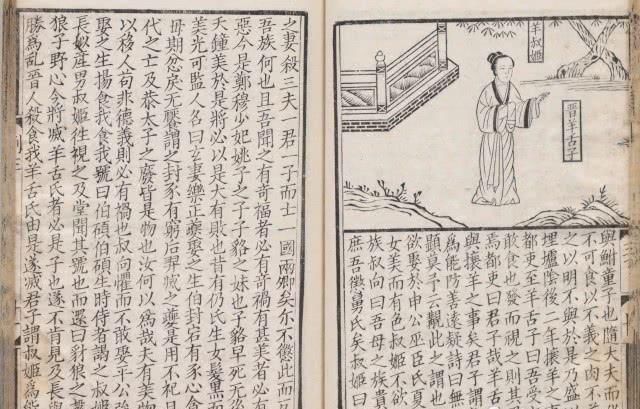 羊叔姬
晋羊舌子
與鮒童子也隨大夫而
不可食以不義之肉不
之以明不與於是乃盛
埋壚陰後二年攘羊之
都吏至羊舌子曰吾受
敢食也發而視之則其
焉都吏曰君子哉羊舌
與攘羊之事矣君子謂
為能防害遠疑詩曰無
顯莫予云覯此之謂也
欲娶於申公巫臣氏夏
女美而有色叔姬不欲
族叔向曰吾母之族貴
庶吾懲舅氏矣叔姬曰
之妻殺三夫一君一子而亡一國兩卿矣尓不懲此而
吾族何也且吾聞之有奇福者必有奇禍有甚美者必有
惡今是鄭穆少妃姚子之子子貉之妹也子貉早死无後
天鍾美於是將必以是大有敗也昔有仍氏生女髮黑而
美光可監人名曰玄妻樂正夔娶之生伯封宕有豕心貪
毋期忿戾无饜謂之封豕有窮后羿滅之夔是用不祀
代之亡及恭太子之廢皆是物也汝何以為哉夫有美
以移人苟非德義則必有禍也叔向懼而不敢娶平公強
娶之生揚食我食我號曰伯碩伯碩生時侍者謁之叔
長姒產男叔姬徃視之及堂聞其號也而還曰豺狼之
狼子野心今將滅羊舌氏者必是子也遂不肯見及長
勝為亂晉人殺食我羊舌氏由是遂滅君子謂叔姬為能